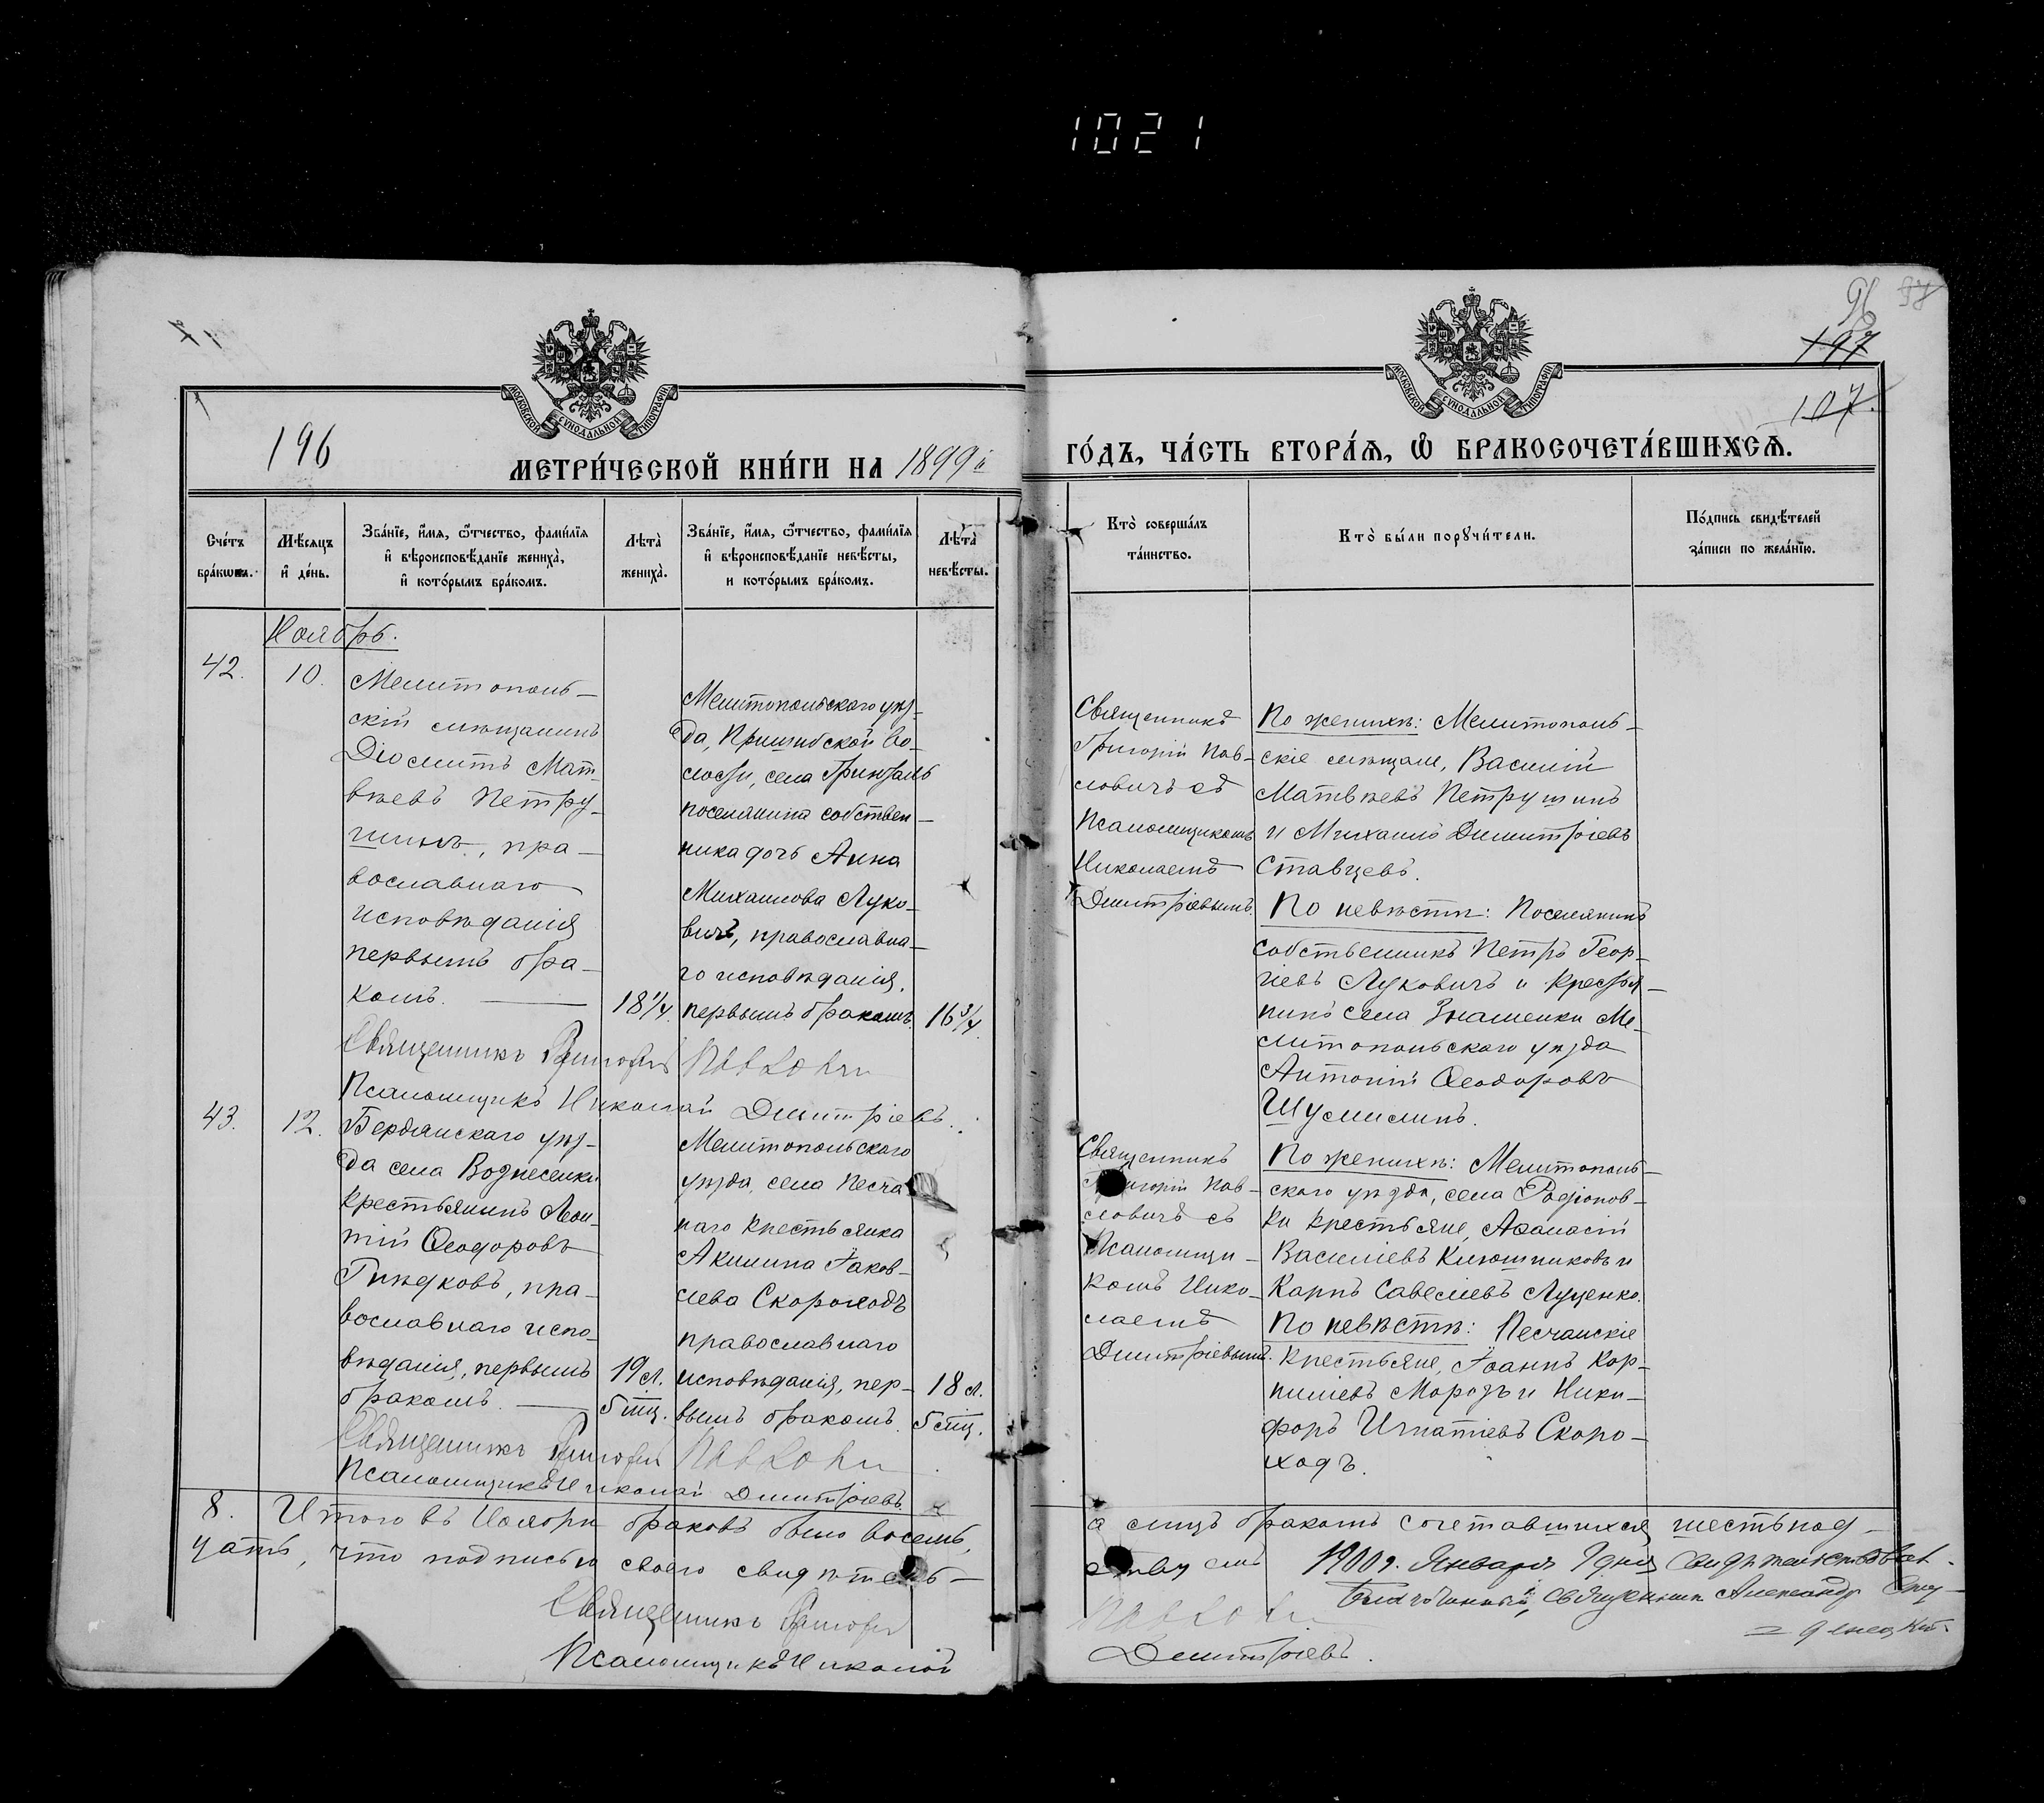 1021
96 97
197
107.
196
МОСКОВСКОЙ СУНОДАЛЬНОЙ ТИПОГРАФІИ
МОСКОВСКОЙ СУНОДАЛЬНОЙ ТИПОГРАФІИ
МЕТРИ́ЧЕСКОЙ КНИ́ГИ НА 1899й
ГО́ДЪ, ЧА́СТЬ ВТОРА́Я, Ѡ БРАКОСОЧЕТА́ВШИХСЯ.
Сче́тъ
бра́кωвъ.
Мѣ́сяцъ
и҆ де́нь.
Зва́нїе, и҆́мя, ѻ҆́тчество, фами́лїя
и҆ вѣроисповѣ́данїе жениха̀,
и҆ кото́рымъ бра́комъ.
Лѣта̀
жениха̀.
Зва́нїе, и҆́мя, ѻ҆́тчество, фами́лїя
и҆ вѣроисповѣ́данїе невѣ́сты,
и кото́рымъ бра́комъ.
Лѣта̀
невѣ́сты.
Кто̀ соверша́лъ
та́инство.
Кто̀ бы́ли порꙋчи́тели.
По́дпись свидѣ́телей
за́писи по жела́нїю.
Ноябрь.
42.
10.
Мелитополь-
скій мѣщанинъ
Діомитъ Мат-
вѣевъ Петру-
шинъ, пра-
вославнаго
исповѣданія
первымъ бра-
комъ.
18 1/4.
Мелитопольскаго уѣз-
да, Пришибской во-
лости, села Гринталь
поселянина собствен-
ника дочь Анна
Михаилова Луко-
вичъ, православна-
го исповѣданія,
первымъ бракомъ.
16 3/4.
Священникъ
Григорій Пав-
ловичъ съ
Псаломщикомъ
Николаемъ
Димитріевымъ.
По женихѣ: Мелитополь-
скіе мѣщане, Василій
Матвѣевъ Петрушинъ
и Михаилъ Димитріевъ
Ставцевъ.
По невѣстѣ: Поселянинъ
собственникъ Петръ Геор-
гіевъ Луковичъ и крестья-
нинъ села Знаменки Ме-
литопольскаго уѣзда
Антоній Ѳеодоровъ
Шусмилинъ.
Священникъ Григорій Павловичъ
Псаломщикъ Николай Димитріевъ.
43.
12.
Бердянскаго уѣз-
да села Вознесенки
крестьянинъ Леон-
тій Ѳеодоровъ
Гнѣдковъ, пра-
вославнаго испо-
вѣданія, первымъ
бракомъ.
19 л.
5 мц.
Мелитопольскаго
уѣзда, села Песча-
наго крестьянка
Акилина Іаков-
лева Скороходъ
православнаго
исповѣданія, пер-
вымъ бракомъ.
18 л.
5 мц.
Священникъ
Григорій Пав-
ловичъ съ
Псаломщи-
комъ Нико-
лаемъ
Димитріевымъ.
По женихѣ: Мелитополь-
скаго уѣзда, села Родіонов-
ки крестьяне, Аѳанасій
Василіевъ Клюшниковъ и
Карпъ Савеліевъ Луценко.
По невѣстѣ: Песчанскіе
крестьяне, Іоаннъ Кор-
ниліевъ Морозъ и Ники-
форъ Игнатіевъ Скоро-
ходъ.
Священникъ Григорій Павловичъ
Псаломщикъ Николай Димитріевъ.
8. Итого въ Ноябрѣ браковъ было восемь,
а лицъ бракомъ сочетавшихся шестьнад-
цать, что подписью своею свидѣтель-
ствуемъ
1900 г. Января 9 дня свидѣтельствовал
Благочинный, Священникъ Александръ
Священникъ Григорій
Павловичъ
Псаломщикъ Николай
Димитріевъ.